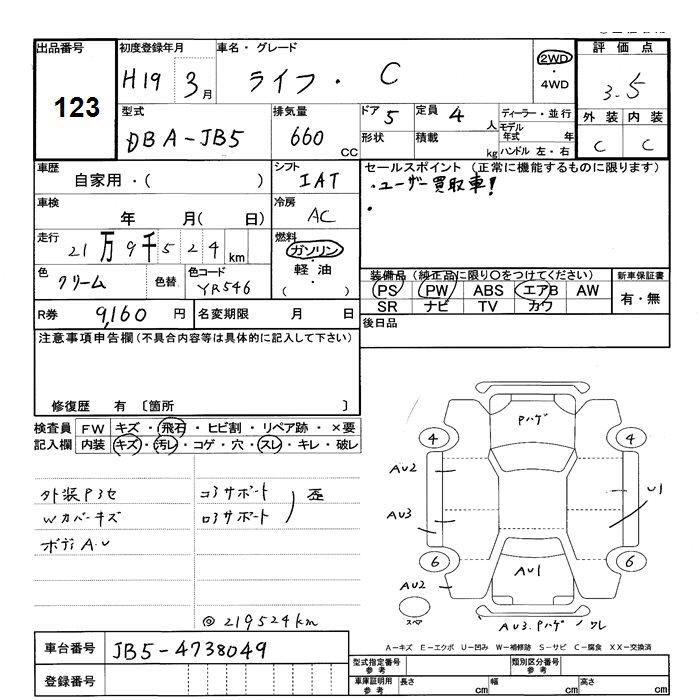 出品番号
123
初度登録年月
H19 3月
車名・グレード
ライフ・ C
2WD
・
4WD
評価点
3.5
外装 内装
C C
型式
DBA-JB5
排気量
660 CC
ドア 5
定員 4人
形状
積載 kg
ディーラー・並行
モデル年式 年
ハンドル 左・右
車歴
自家用・( )
シフト
IAT
セールスポイント (正常に機能するものに限ります)
・ユーザー買取車!
・
車検
年 月(日)
冷房
AC
走行
21万9千524km
燃料
ガソリン
・
軽油
( )
色
クリーム
色替
色コード
YR546
装備品 (純正品に限り○をつけてください)
PS PW ABS エアB AW
SR ナビ TV カワ
新車保証書
有・無
R券 9,160円
名変期限 月 日
後日品
注意事項申告欄(不具合内容等は具体的に記入して下さい)
修復歴 有 〔箇所 〕
検査員記入欄
FW キズ・飛石・ヒビ割・リペア跡・×要
内装 キズ・汚レ・コゲ・穴・スレ・キレ・破レ
外装P3セ
Wカバーキズ
ボディA.U
コアサポート
ロアサポート
歪
◎219524km
Pハゲ
4
4
AU2
U1
AU3
6
6
AU1
AU2
スペア
AU3.Pハゲ
ワレ
A-キズ E-エクボ U-凹み W-補修跡 S-サビ C-腐食 XX-交換済
車台番号 JB5-4738049
登録番号
型式指定番号 参考
類別区分番号 参考
車庫証明用 参考
長さ cm
幅 cm
高さ cm